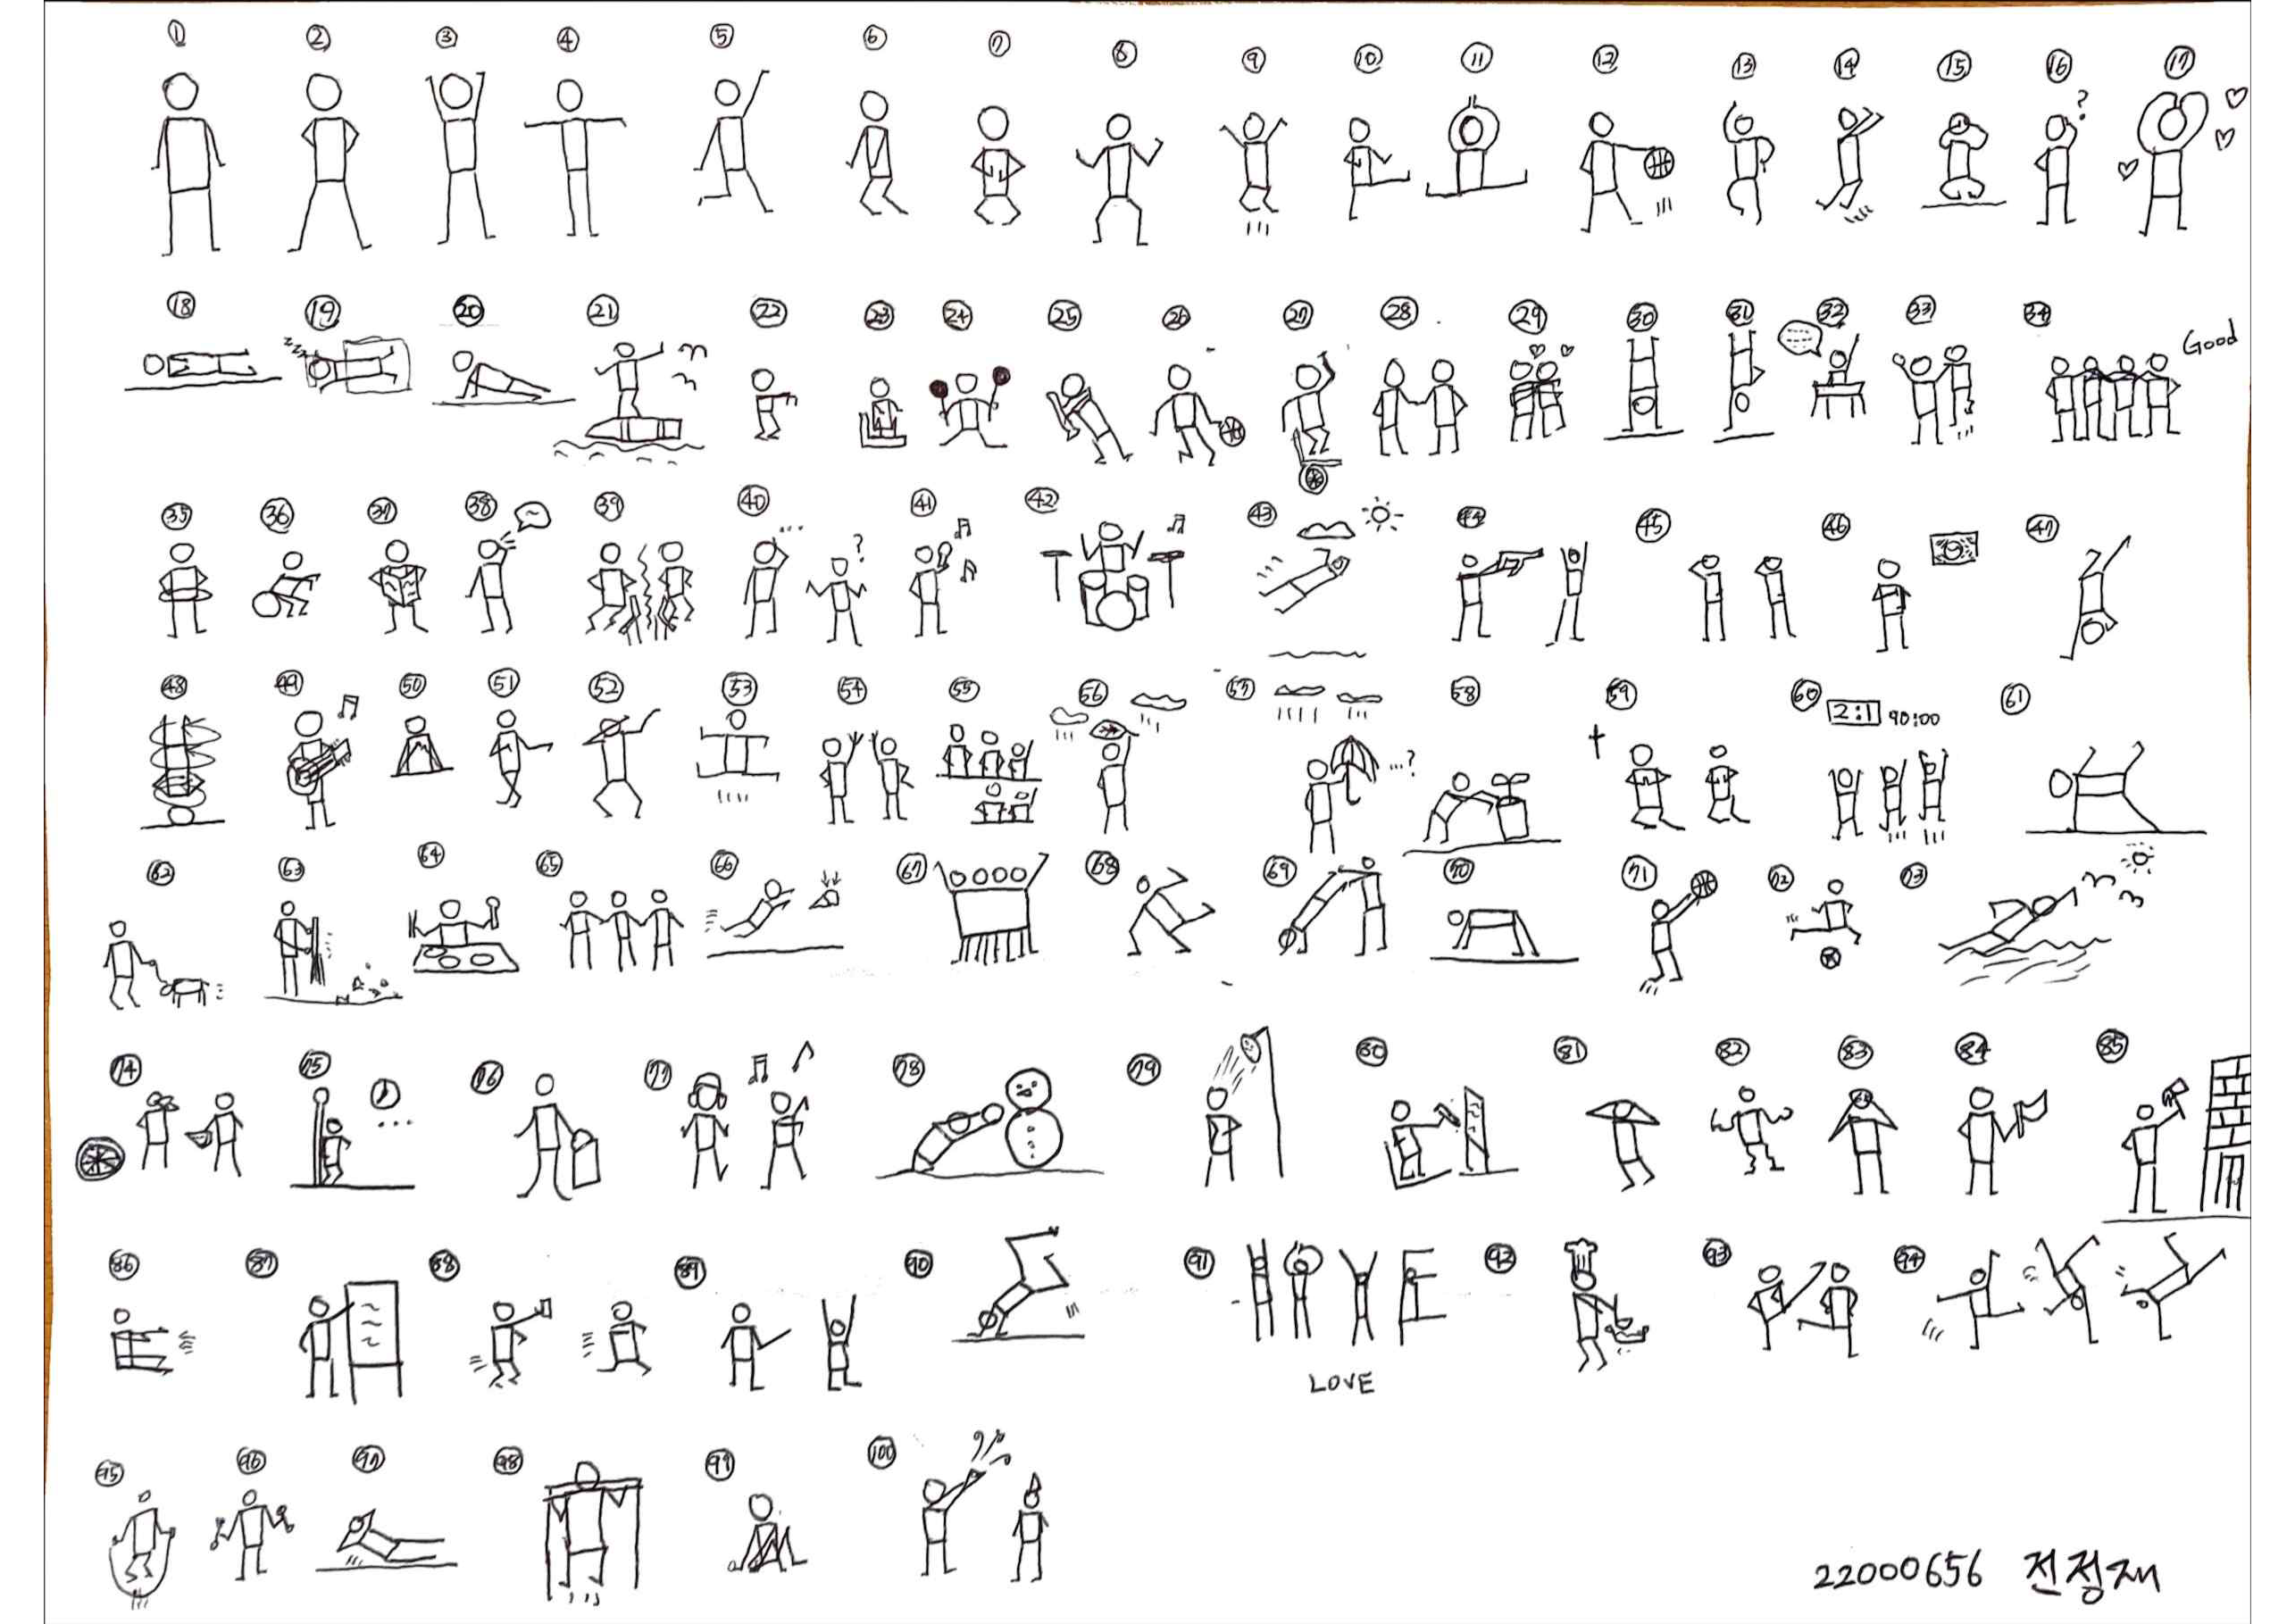 ① ② ③ ④ ⑤ ⑥ ⑦ ⑧ ⑨ ⑩ ⑪ ⑫ ⑬ ⑭ ⑮ ⑯ ⑰
?
⑱ ⑲ ⑳ ㉑ ㉒ ㉓ ㉔ ㉕ ㉖ ㉗ ㉘ ㉙ ㉚ ㉛ ㉜ ㉝ ㉞
z z z
Good
㉟ ㊱ ㊲ ㊳ ㊴ ㊵ ㊶ ㊷ ㊸ ㊹ ㊺ ㊻ ㊼
... ?
㊽ ㊾ ㊿ 51 52 53 54 55 56 57 58 59 60 61
2:1 90:00
...?
62 63 64 65 66 67 68 69 70 71 72 73
74 75 76 77 78 79 80 81 82 83 84 85
...
86 87 88 89 90 91 92 93 94
LOVE
95 96 97 98 99 100
22000656 전정재